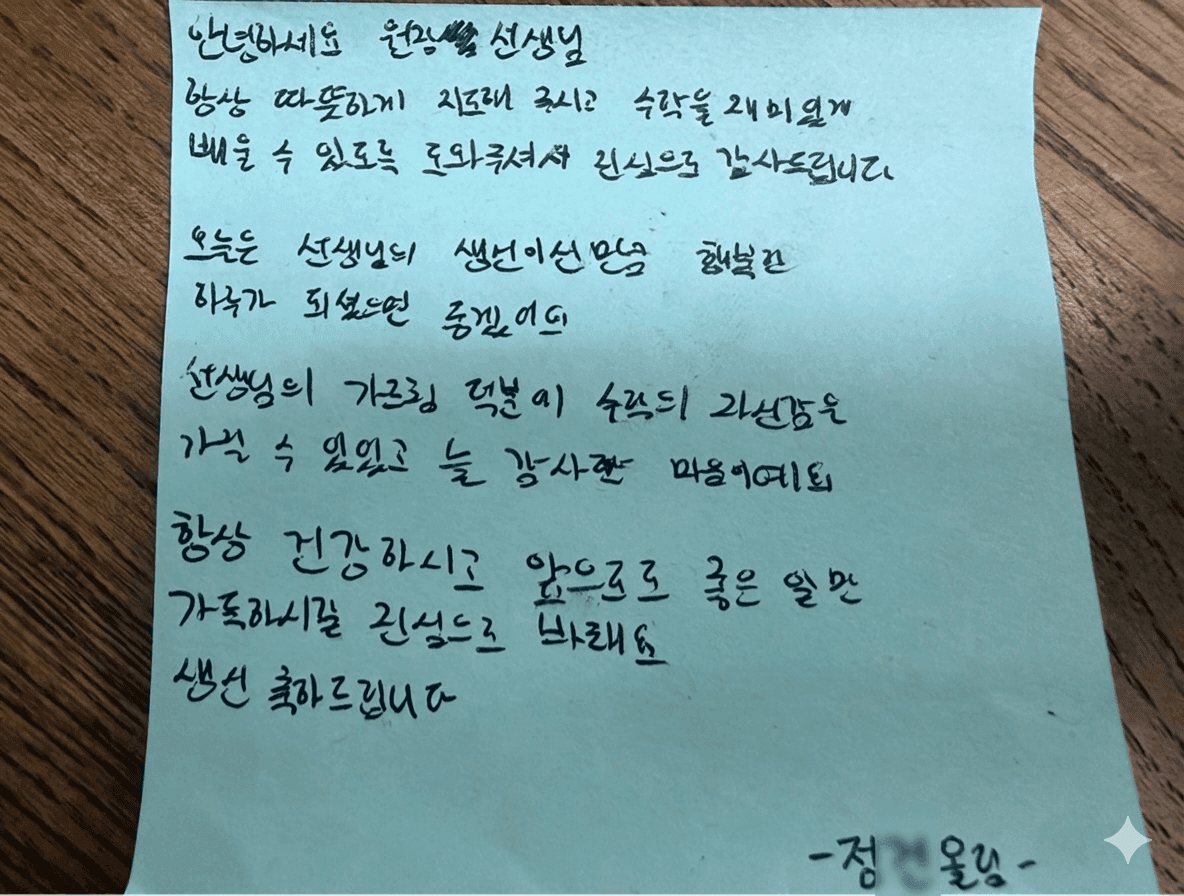 안녕하세요 원장 선생님
항상 따뜻하게 지도해 주시고 수학을 재미있게
배울 수 있도록 도와주셔서 진심으로 감사드립니다
오늘은 선생님의 생신이신만큼 행복한
하루가 되셨으면 좋겠어요
선생님의 가르침 덕분에 수학의 자신감을
가질 수 있었고 늘 감사한 마음이에요
항상 건강하시고 앞으로도 좋은 일만
가득하시길 진심으로 바래요
생신 축하드립니다
-정 올림-